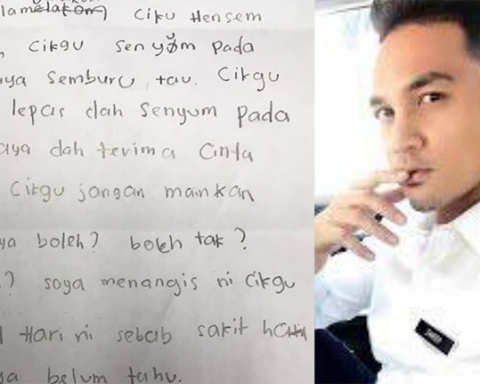 Ciku Hensem
, Cikgu senyum pada
aya Semburu tau. Cikgu
lepas dah Senyum pada
aya dah terima Cinta
Cikgu jangan mainkan
ya boleh? boleh tak?
? saya menangis ni Cikgu
Hari ni sebab sakit
ya belum tahu.